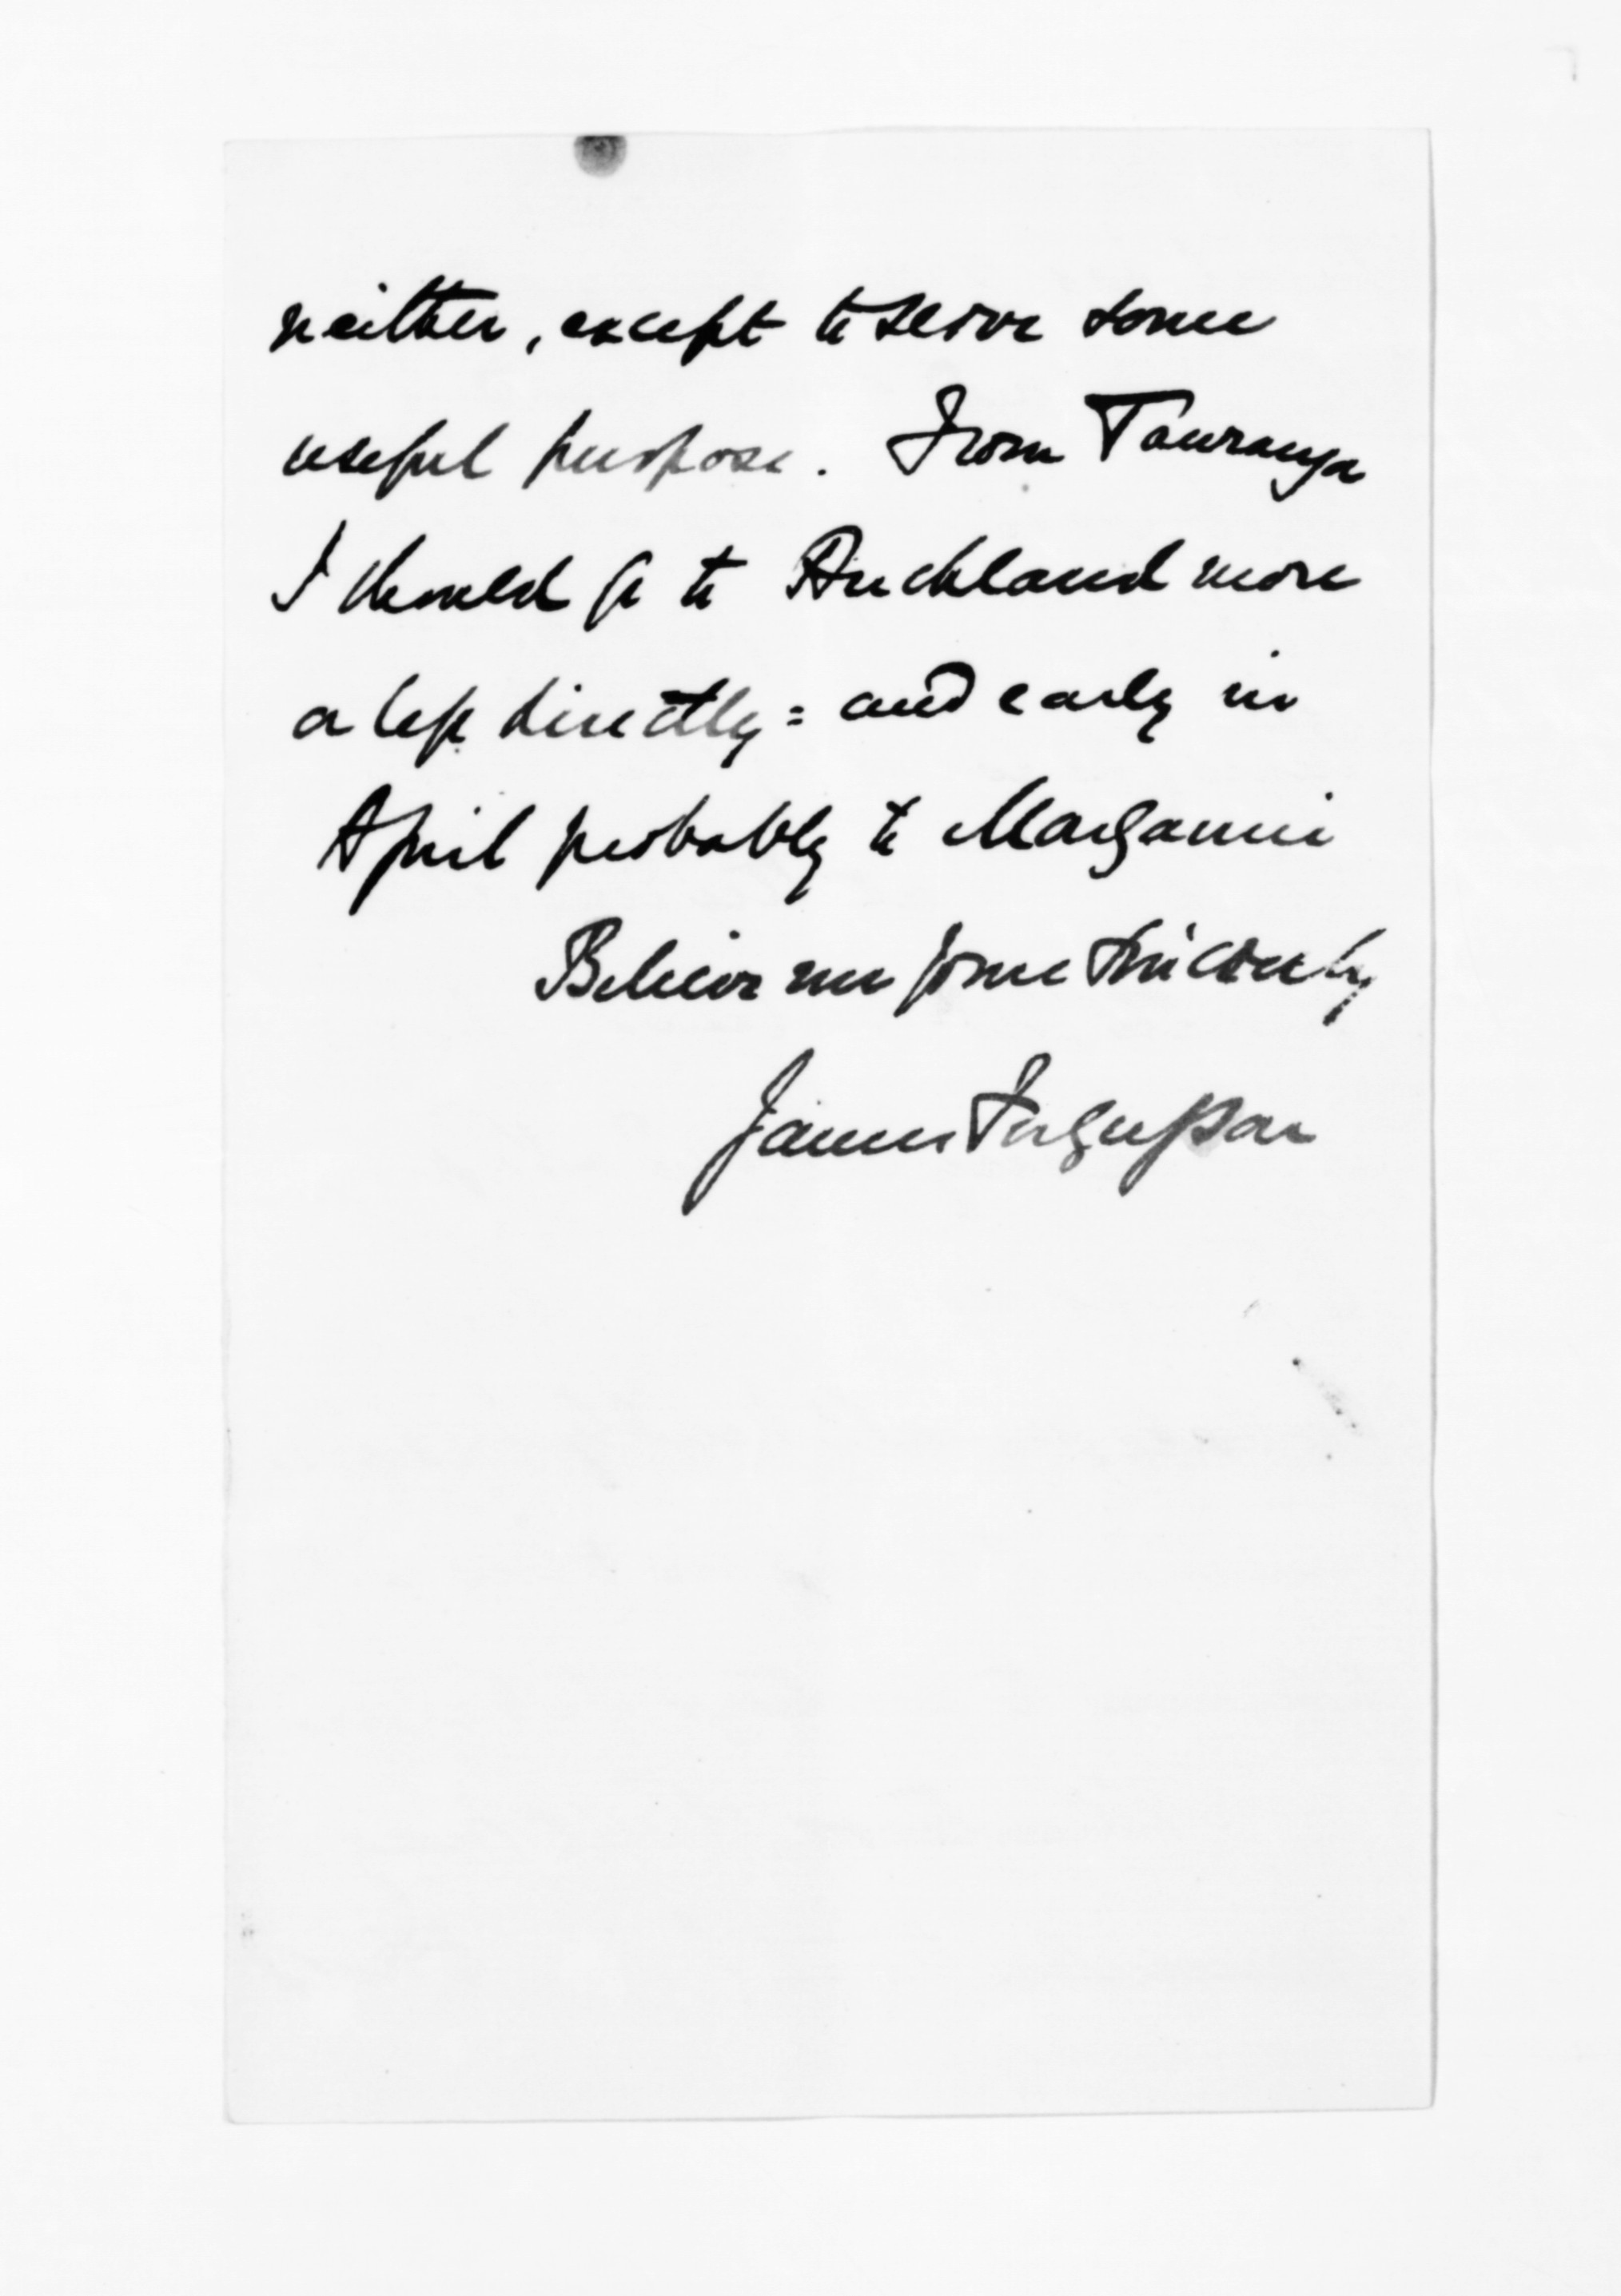 neither, except to serve some
useful purpose. From Tauranga
I should go to Auckland more
or less directly = and early in
April probably to Mangonui
Believe me yours sincerely
James Fergusson